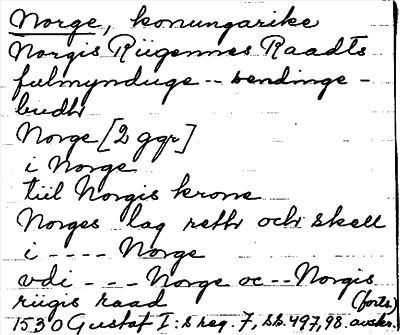 Norge, konungarike
Norgis Riigennes Raadts
fulmynduge -- sendinge -
budh
Norge [2 ggr]
i Norge
tiil Norgis krone
Norges lag reth och skell
i ---- Norge
vdi --- Norge oc -- Norgis
riigis raad (forts.)
1530 Gustaf I:s reg. 7, sb. 497,98. avskr.